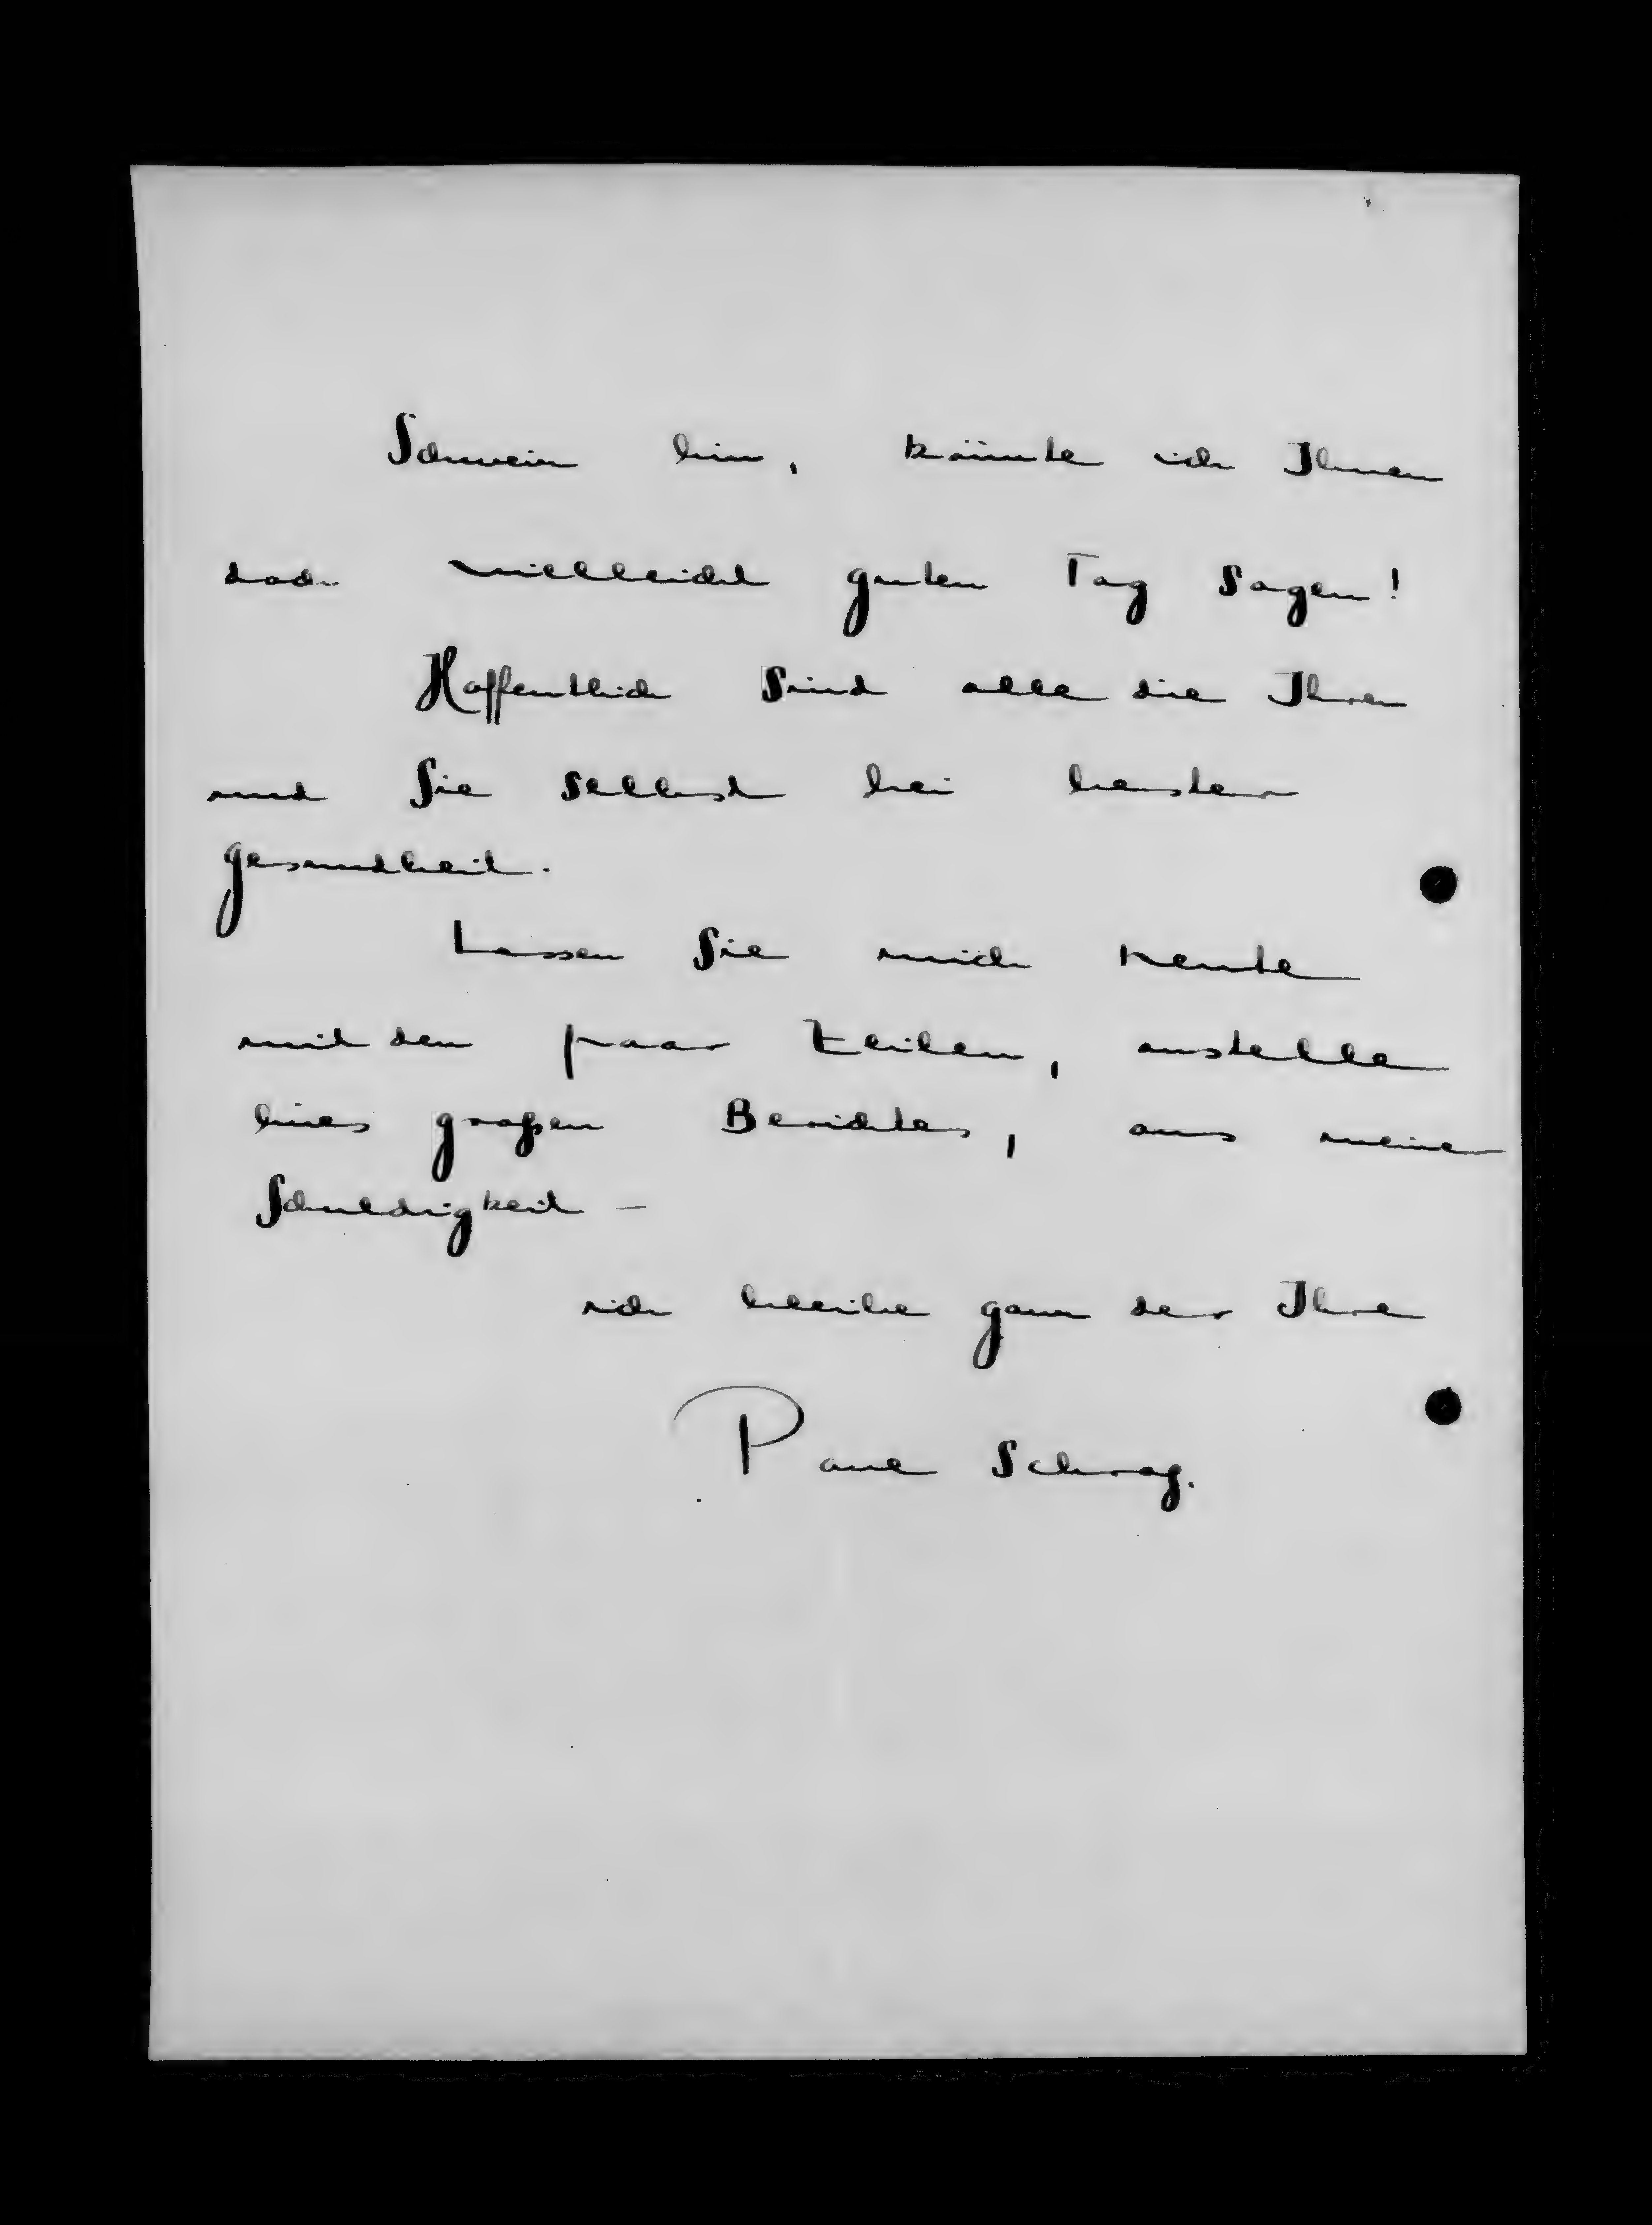 Schweiz bin, könnte ich Ihnen
doch vielleicht guten Tag sagen!
Hoffentlich sind alle die Ihren
und Sie selbst bei bester
Gesundheit.
Lassen Sie mich heute
mit den paar Zeilen, anstelle
eines großen Berichtes, aus meiner
Schuldigkeit –
ich bleibe ganz der Ihre
Paul Schrag.